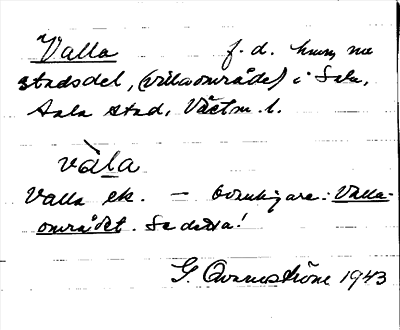 Valla f. d. hmn, nu
stadsdel, (villaområde) i Sala,
Sala stad, Västm. l.
vàla
Valla ek. – ovanligare: Valla-
området. Se detta!
G. Qvarnström 1943